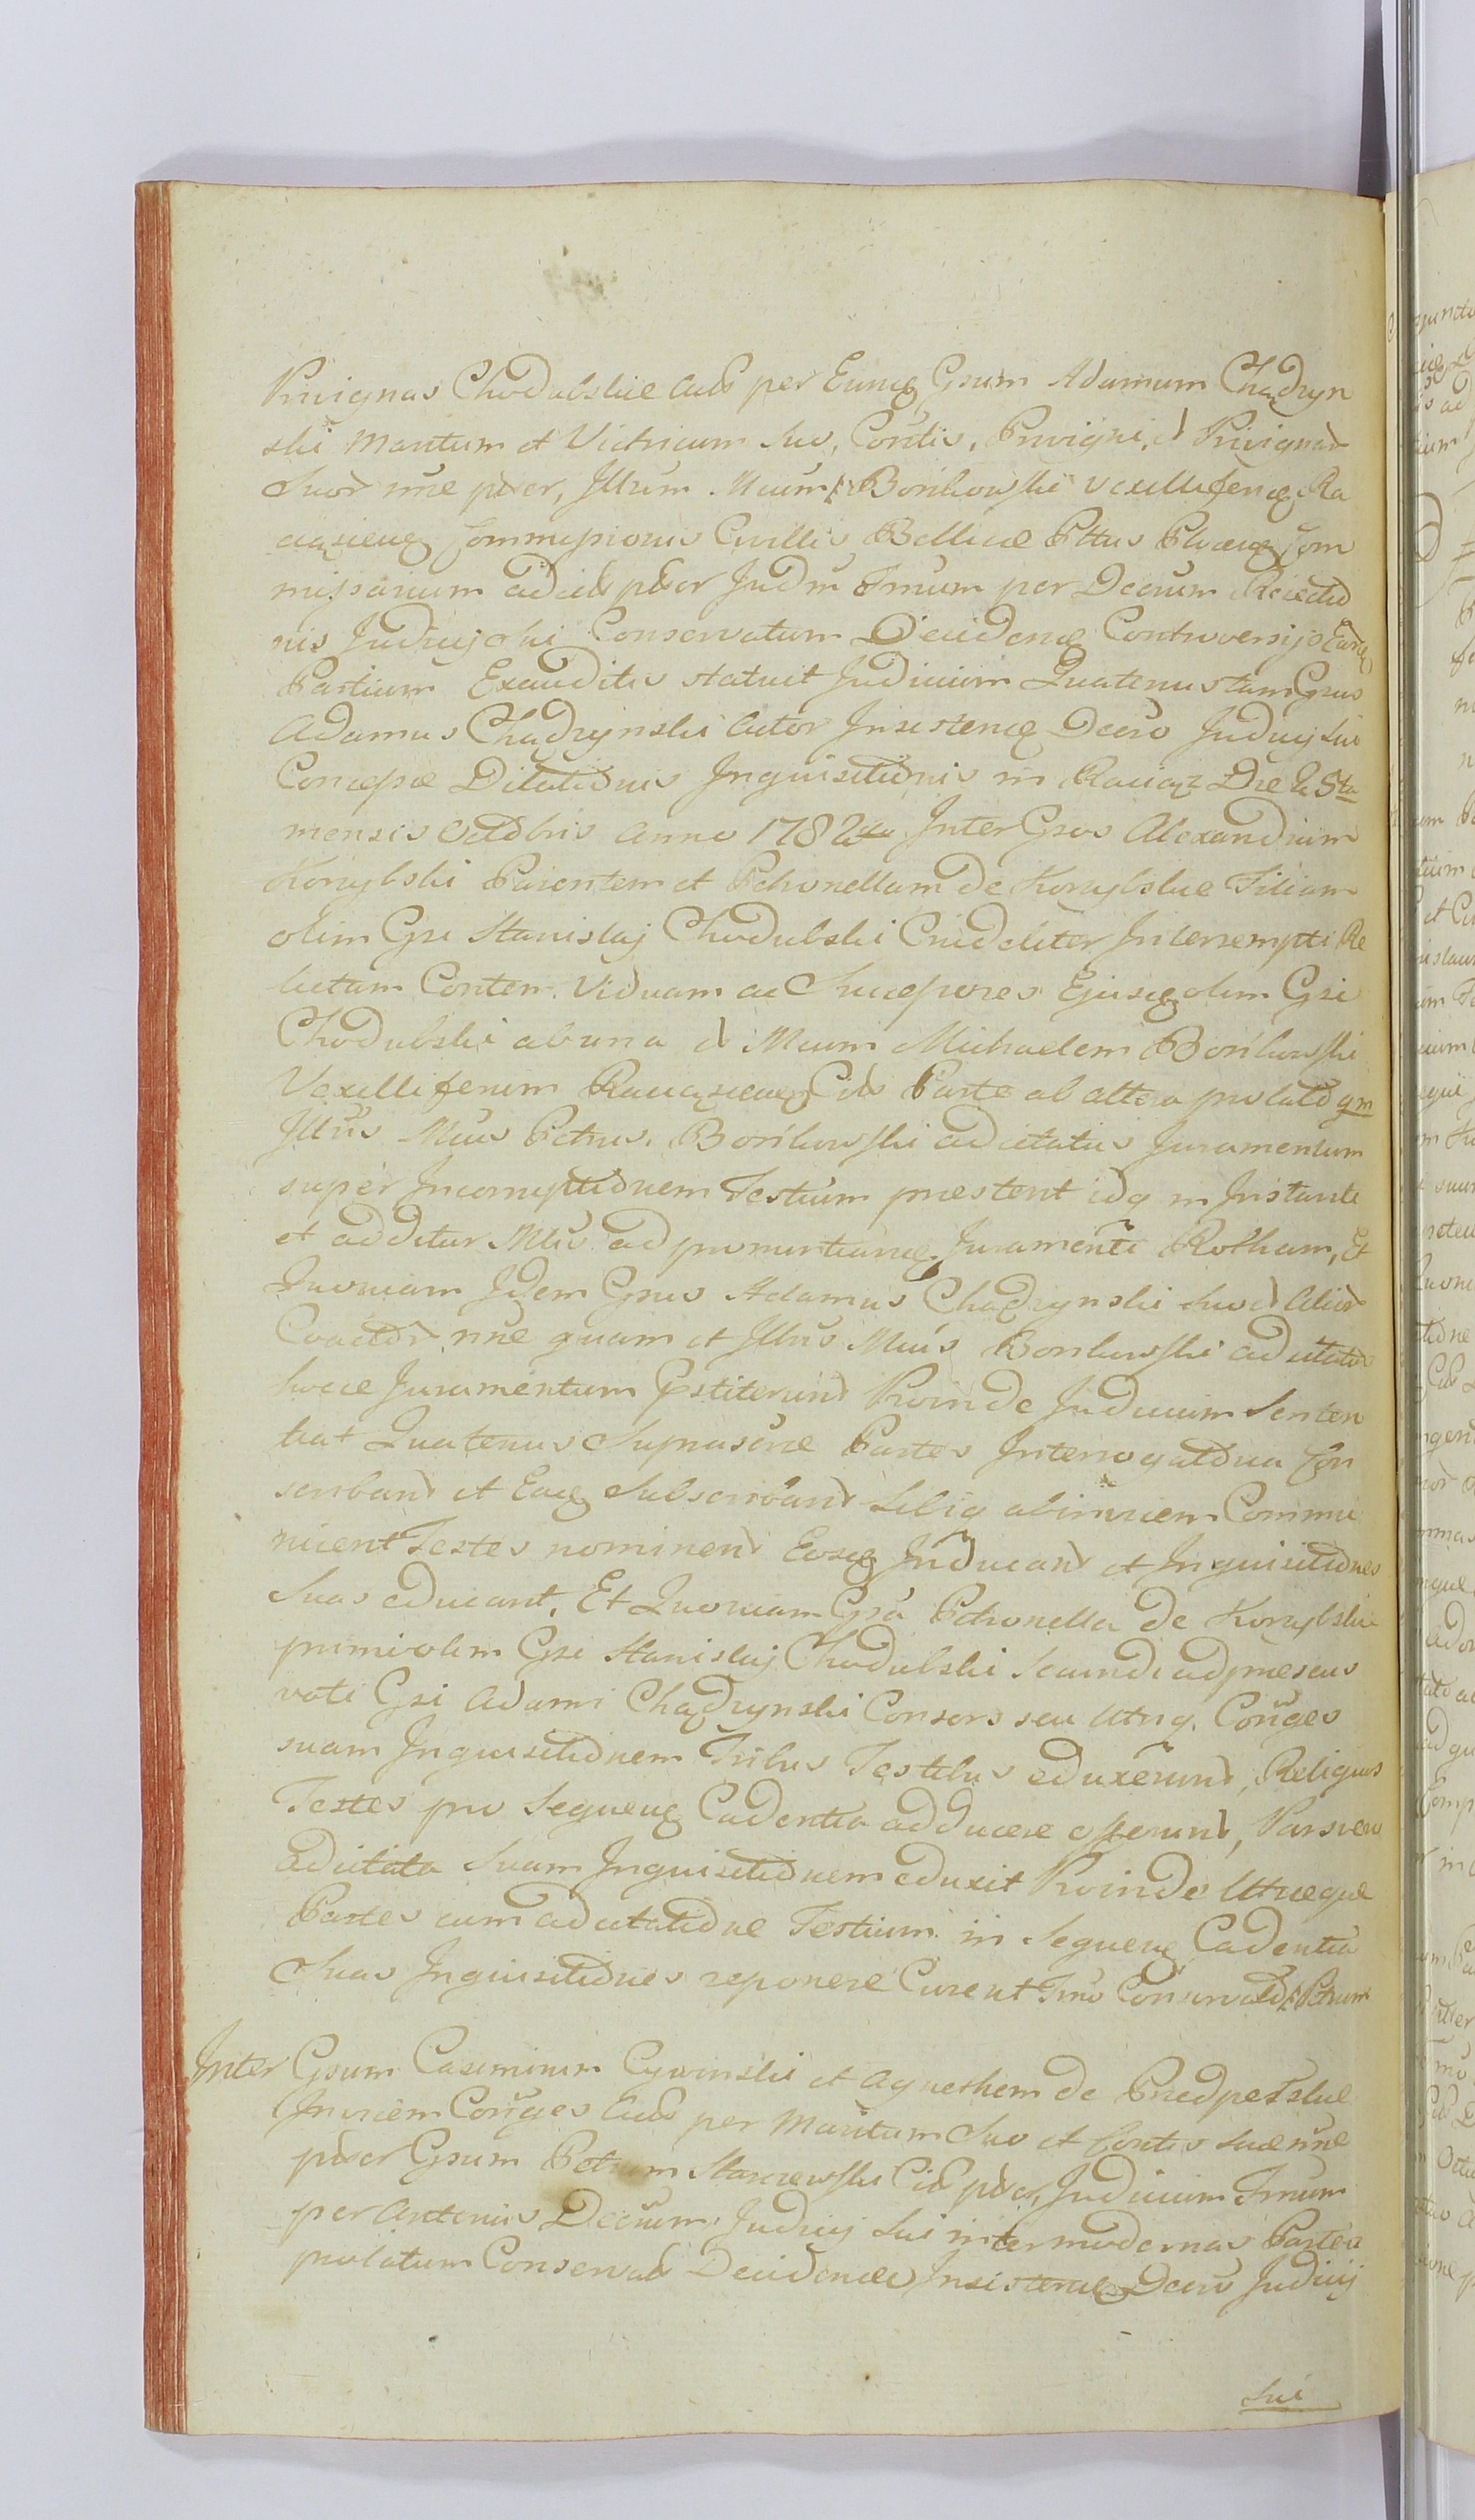 Privignas Chodubskie Cites per Eundę Gsum Adamum Chądzyn
ski Maritum et Vitricum Suo, Contis, Privigni, et Privignar
Suor nne pter, Illum Mcum Borikowski Vexilliferuę Ra
ciązieuę Commissionis Civillis Bellicae Pttus Plceuę Com
missarium adcit pter Judm Trnum per Decrum Reiectio
nis Judicij sui Conservatum Decidenę Controversijs Earuę
Partium Exauditis statuit Judicium Quatenus tam Gsus
Adamus Chądzynski Actor Insistenę Decro Judicij Sui
Concessae Dilationis Inquisitionis in Raciąz Die 5ta
mensis Octobris Anno 1782do Inter Gsos Alexandrum
Korzybski Parentem et Petronellam de Korzybskie Filiam
olim Gsi Stanislaj Chodubski Crudeliter Interrempti Re
lictam Conten. Viduam ac Successores Ejusdę olim Gsi
Chodubski ab una et Mcum Michaelem Borikowski
Vexilliferum Raciązieuę Cit Parte ab altera prolato qm
Illus Mcus Petrus Borikowski adcitatus Juramentum
super Incorruptionem Testium praestent idq in Instanti
et additur Mtis ad pronuntianę Juramenti Rotham, Et
Quoniam Idem Gsus Adamus Chądzynski Suo et Alior
Coactor nne quam et Illus Mcus Borikowski adcitatus
hocce Juramentum Pstiterunt Proinde Judicium Senten
tiat Quatenus Suprascrae Partes Interrogatoria Con
scribant et Eadę Subscribant Sibiq abinvicem Commu
nicent Testes nominent Eosdę Inducant et Inquisitiones
Suas educant, Et Quoniam Gsa Petronella de Korzybskie
primi olim Gsi Stanislaj Chodubski Secundi adpraesens
voti Gsi Adami Chądzynski Consors seu Utriq. Conges
suam Inquisitionem Tribus Testibus eduxerunt, Reliquos
Testes pro Sequenę Cadentia adducere offerunt, Pars vero
adcitata Suam Inquisitionem eduxit Proinde Utraeque
Partes cum adcitatione Testium in Sequenę Cadentia
Suas Inquisitiones reponere Curent Trno Conservato Petrum
Inter Gsum Casimirum Cywinski et Agnethem de Predpeskie
Invicem Conges Cites per Maritum Suo et Contis Suae nne
pter Gsum Petrum Starzewski Cit pter, Judicium Trnum
per Anterius Decrum Judicij Sui inter modernas Partes
prolatum Conservat Decidendo Insistenę Decro Judicij
Sui